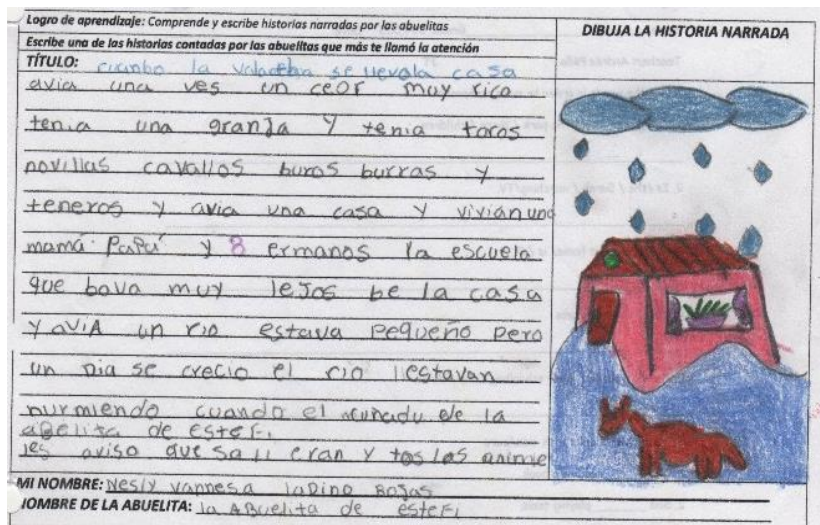 Logro de aprendizaje: Comprende y escribe historias narradas por las abuelitas
DIBUJA LA HISTORIA NARRADA
Escribe una de las historias contadas por las abuelitas que más te llamó la atención
TÍTULO: cuanbo la se llevala casa
avia una ves un ceor muy rico
tenia una granja y tenia toros
novillas cavallos buros burras y
teneros y avia una casa y vivian una
mamá Papá y 8 ermanos la escuela
que bava muy lejos be la casa
y aviA un rio estava pequeño pero
un Dia se crecio el rio iestavan
Durmiendo cuando el de la
abelita de esteFi
les aviso que sali eran y tos las anime
MI NOMBRE: Nesly vannesa laDino Rojas
NOMBRE DE LA ABUELITA: la ABuelita de esteFi